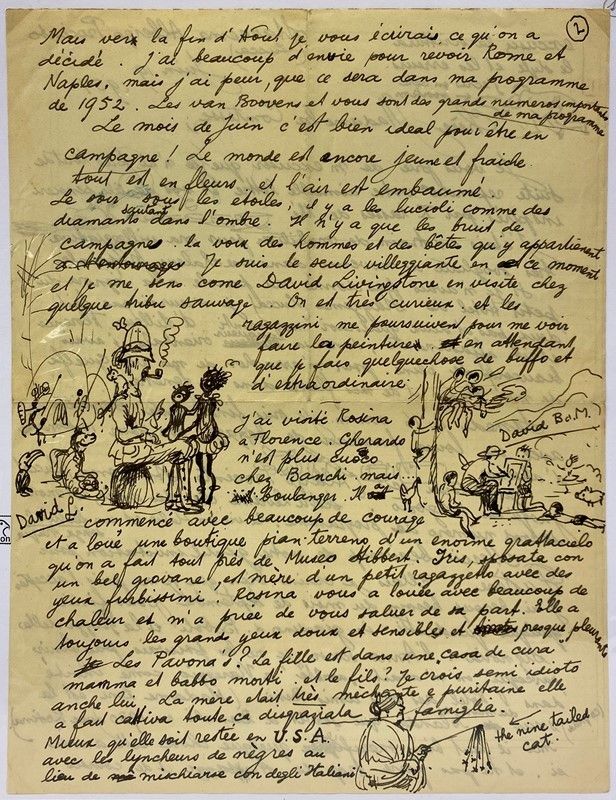 2
Mais vers la fin d'Aôut je vous écrirais ce qu'on a
décidé. J'ai beaucoup d'envie pour revoir Rome et
Naples, mais j'ai peur, que ce sera dans ma programme
de 1952. Les van Boovens et vous sont des grands numeros importants
de ma programme
Le mois de Juin c'est bien ideal pour être en
campagne! Le monde est encore jeune et fraiche
tout est en fleurs et l'air est embaumé.
Le soir sous les etoiles, il y a les lucioli comme des
diamants sautant dans l'ombre. Il n'y a que les bruit de
campagne. la voix des hommes et des bêtes qu y appartienent
Je suis le seul villeggiante en ce moment
et je me sens come David Livingstone en visite chez
quelque tribu sauvage On est très curieux, et les
ragazzini me poursuiven pour me voir
faire la peinture. en attendant
que je fais quelquechose de buffo et
d'extraordinaire.
J'ai visité Rosina
a Florence. Gherardo
n'est plus cuoco
chez Banchi mais..
Boulanger. Il
David B.o.M.
David L.
commencé avec beaucoup de courage
et a loué une boutique pian-terreno d'un enorme grattacielo
qu'on a fait tout près de Museo Stibbert. Iris, sposata con
un bel giovane, est mère d'un petit ragazzetto avec des
yeux furbissimi. Rosina vous a louée avec beaucoup de
chaleur et m'a priée de vous saluer de sa part. Elle a
toujours les grands yeux doux et sensibles et presque pleurants
Les Pavona's? La fille est dans une "casa de cura"
mamma et babbo morti. et le fils? Je crois semi idioto
anche lui. La mère etait très mechante e puritaine elle
a fait cattiva toute ca disgraziata famiglia.
Mieux qu'elle soit restée en U.S.A.
avec les lyncheurs de nègres au
lieu de mischiarse con degli Italiani
the nine tailed
cat.